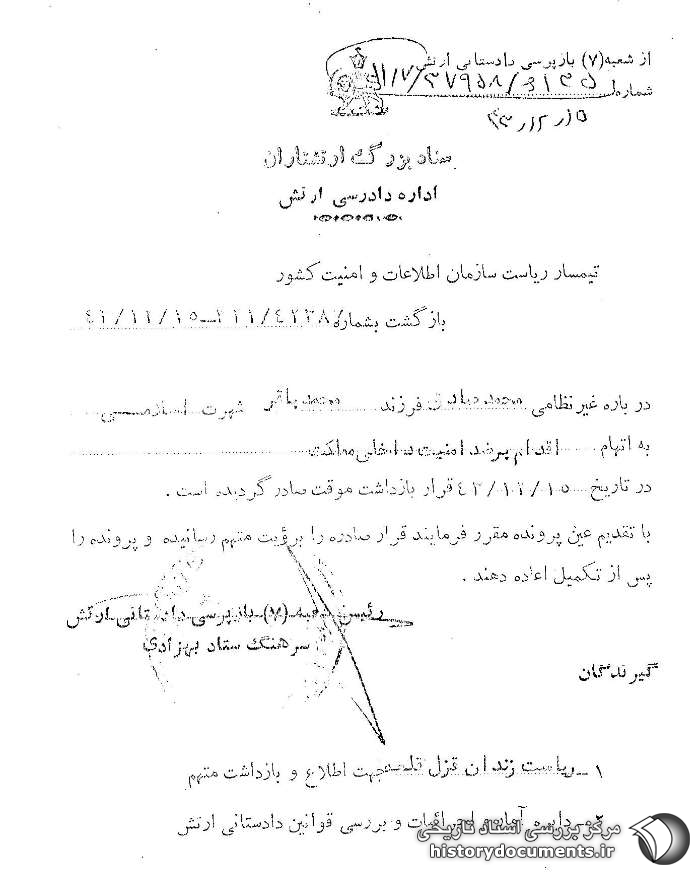 از شعبه (۷) بازپرسی دادستانی ارتش
شماره
ستاد بزرگ ارتشتاران
اداره دادرسی ارتش
تیمسار ریاست سازمان اطلاعات و امنیت کشور
بازگشت بشماره
در باره غیر نظامی محمد صادق فرزند محمد باقر شهرت
به اتهام اقدام بر ضد امنیت داخلی مملکت
در تاریخ قرار بازداشت موقت صادر گردیده است .
با تقدیم عین پرونده مقرر فرمایند قرار صادره را برؤیت متهم رسانیده و پرونده را
پس از تکمیل اعاده دهند .
رئیس شعبه (۷) بازپرسی دادستانی ارتش
سرهنگ ستاد بهزادی
گیرندگان
۱ـ ریاست زندان قزل قلعه جهت اطلاع و بازداشت متهم
۲ـ دایره و بررسی قوانین دادستانی ارتش
مرکز بررسی اسناد تاریخی
historydocuments.ir